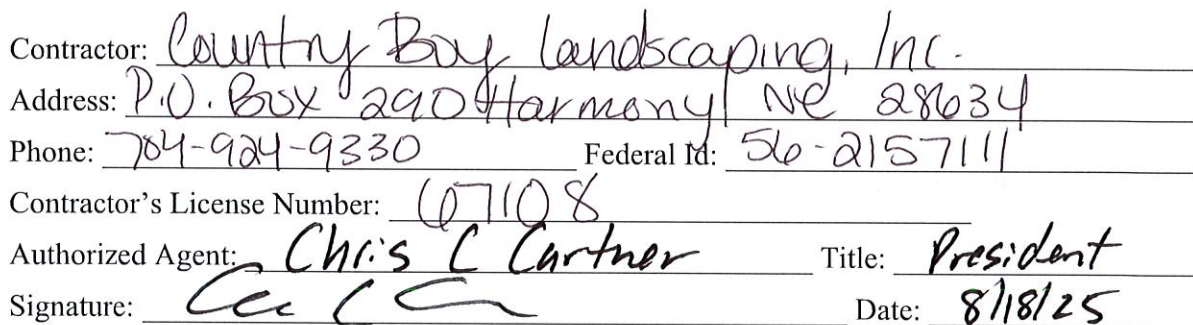 Contractor: Country Boy Landscaping, Inc.
Address: P.O. Box 290 Harmony NC 28634
Phone: 704-924-9330 Federal Id: 56-2157111
Contractor's License Number: 67108
Authorized Agent: Chris C Cartner Title: President
Signature: Date: 8/18/25